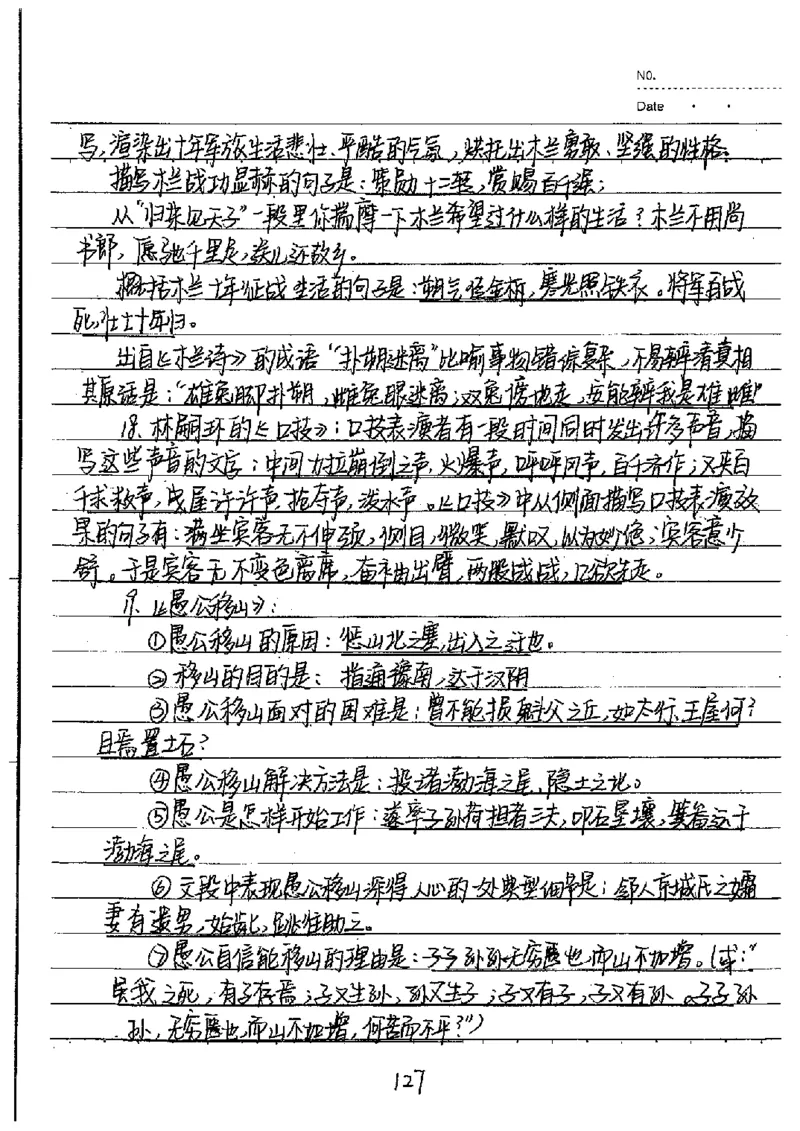 NO.
Date
写,渲染出十年军旅生活悲壮、严酷的气氛,烘托出木兰勇敢、坚强的性格。
描写木兰战功显赫的句子是:策勋十二转,赏赐百千强;
从“归来见天子”一段里你揣摩一下木兰希望过什么样的生活?木兰不用尚
书郎,愿驰千里足,送儿还故乡。
概括木兰十年征战生活的句子是:朔气传金柝,寒光照铁衣。将军百战
死,壮士十年归。
出自《木兰诗》的成语“扑朔迷离”比喻事物错综复杂,不易辨清真相
其原话是:“雄兔脚扑朔,雌兔眼迷离;双兔傍地走,安能辨我是雄雌”
18、林嗣环的《口技》:口技表演者有一段时间同时发出许多声音,描
写这些声音的文字:中间力拉崩倒之声,火爆声,呼呼风声,百千齐作;又夹百
千求救声,曳屋许许声,抢夺声,泼水声。《口技》中从侧面描写口技表演效
果的句子有:满坐宾客无不伸颈,侧目,微笑,默叹,以为妙绝;宾客意少
舒。于是宾客无不变色离席,奋袖出臂,两股战战,几欲先走。
19、《愚公移山》:
①愚公移山的原因:惩山北之塞,出入之迂也。
②移山的目的是: 指通豫南,达于汉阴
③愚公移山面对的困难是:曾不能损魁父之丘,如太行、王屋何?
且焉置土石?
④愚公移山解决方法是:投诸渤海之尾,隐土之北。
⑤愚公是怎样开始工作:遂率子孙荷担者三夫,叩石垦壤,箕畚运于
渤海之尾。
⑥文段中表现愚公移山深得人心的一处典型细节是:邻人京城氏之孀
妻有遗男,始龀,跳往助之。
⑦愚公自信能移山的理由是:子子孙孙无穷匮也,而山不加增。(或:“
虽我之死,有子存焉;子又生孙,孙又生子;子又有子,子又有孙。子子孙
孙,无穷匮也,而山不加增,何苦而不平?”)
127